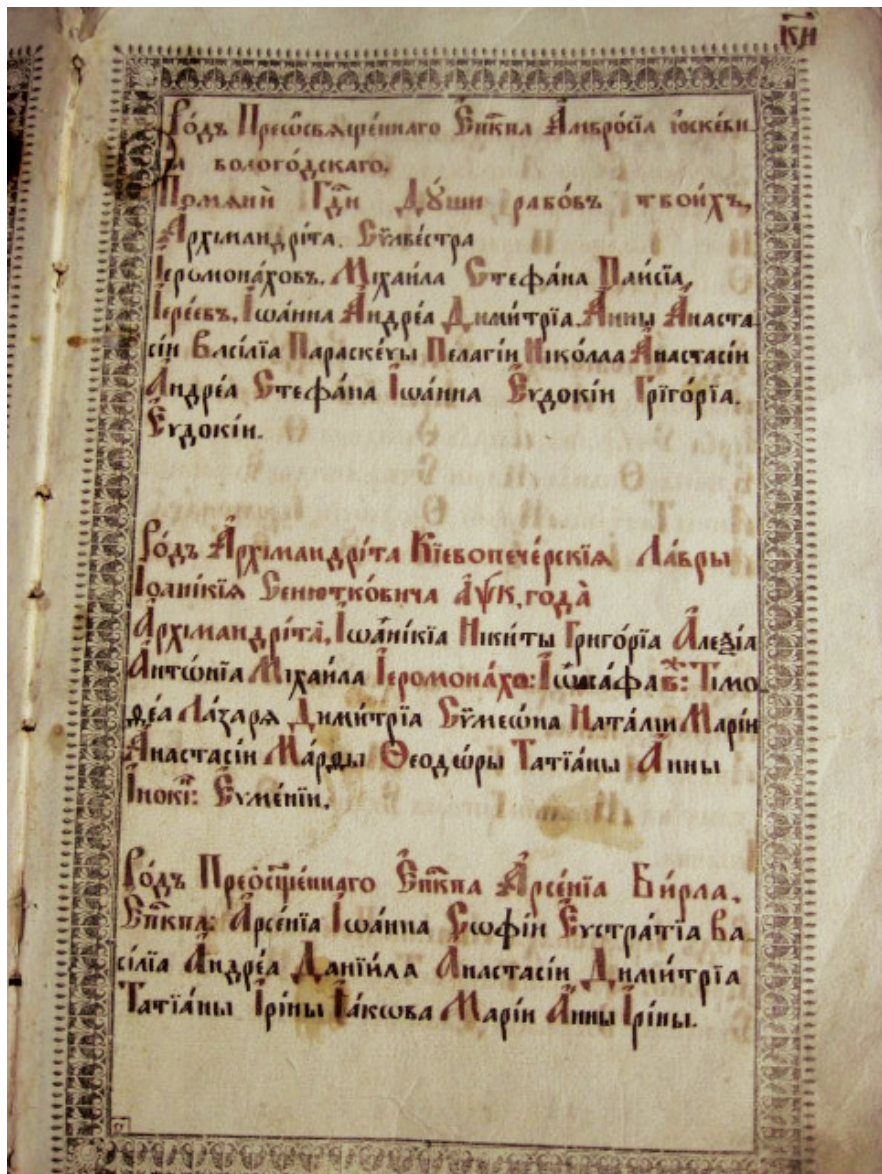 КИ
Ро́дъ Преѡсвѧще́ннагѡ Е҆п҃кпа А҆мвро́сїа ю҆скеви
ча вологѡ́дскагѡ.
Помѧнѝ Гд҃и Дꙋ́ши рабѡ́въ твои́хъ,
А҆рхїмандрі́та. Сѷлве́стра
І҆еромона́ховъ. Мїхаи́ла Стефа́на Паи́сїа,
І҆ере́евъ. І҆ѡа́нна А҆ндре́а Дими́трїа. А҆́нны А҆наста
сі́и Васі́лїа Параске́ѵы Пелагі́и Нїко́лаа А҆настасі́и
А҆ндре́а Стефа́на І҆ѡа́нна Е҆ѵдокі́и Грїго́рїа.
Е҆ѵдокі́и.
Ро́дъ А҆рхїмандрі́та Кїевопече́рскїѧ Ла́вры
І҆оані́кїѧ Сенютко́вича ҂аѱк. го́да
А҆рхїмандрі́та, І҆ѡані́кїа Ники́ты Григо́рїа А҆леѯі́а
А҆нтѡ́нїа Мїхаи́ла І҆еромона́хѡ: І҆ѡаса́фа в҃: Тїмо
ѳе́а Ла́зарѧ Дими́трїа Сѷмеѡ́на Ната́лїи Марі́и
А҆настасі́и Ма́рѳы Ѳеодѡ́ры Татїа́ны А҆́нны
І҆нокі: Е҆ѵме́нїи.
Ро́дъ Преѡсщ҃е́ннагѡ Е҆п҃кпа А҆рсе́нїа Бе́рла.
Е҆п҃кпа: А҆рсе́нїа І҆ѡа́нна Сѡфі́и Е҆ѵстра́тїа Ва
сі́лїа А҆ндре́а Данїи́ла А҆настасі́и Дими́трїа
Татїа́ны І҆рі́ны І҆а́кѡва Марі́и А҆́нны І҆рі́ны.